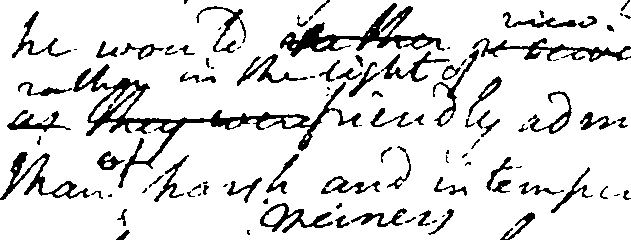 view.
he would rather receive
rather in the light of
as they were friendly adm
of
than harsh and intemper